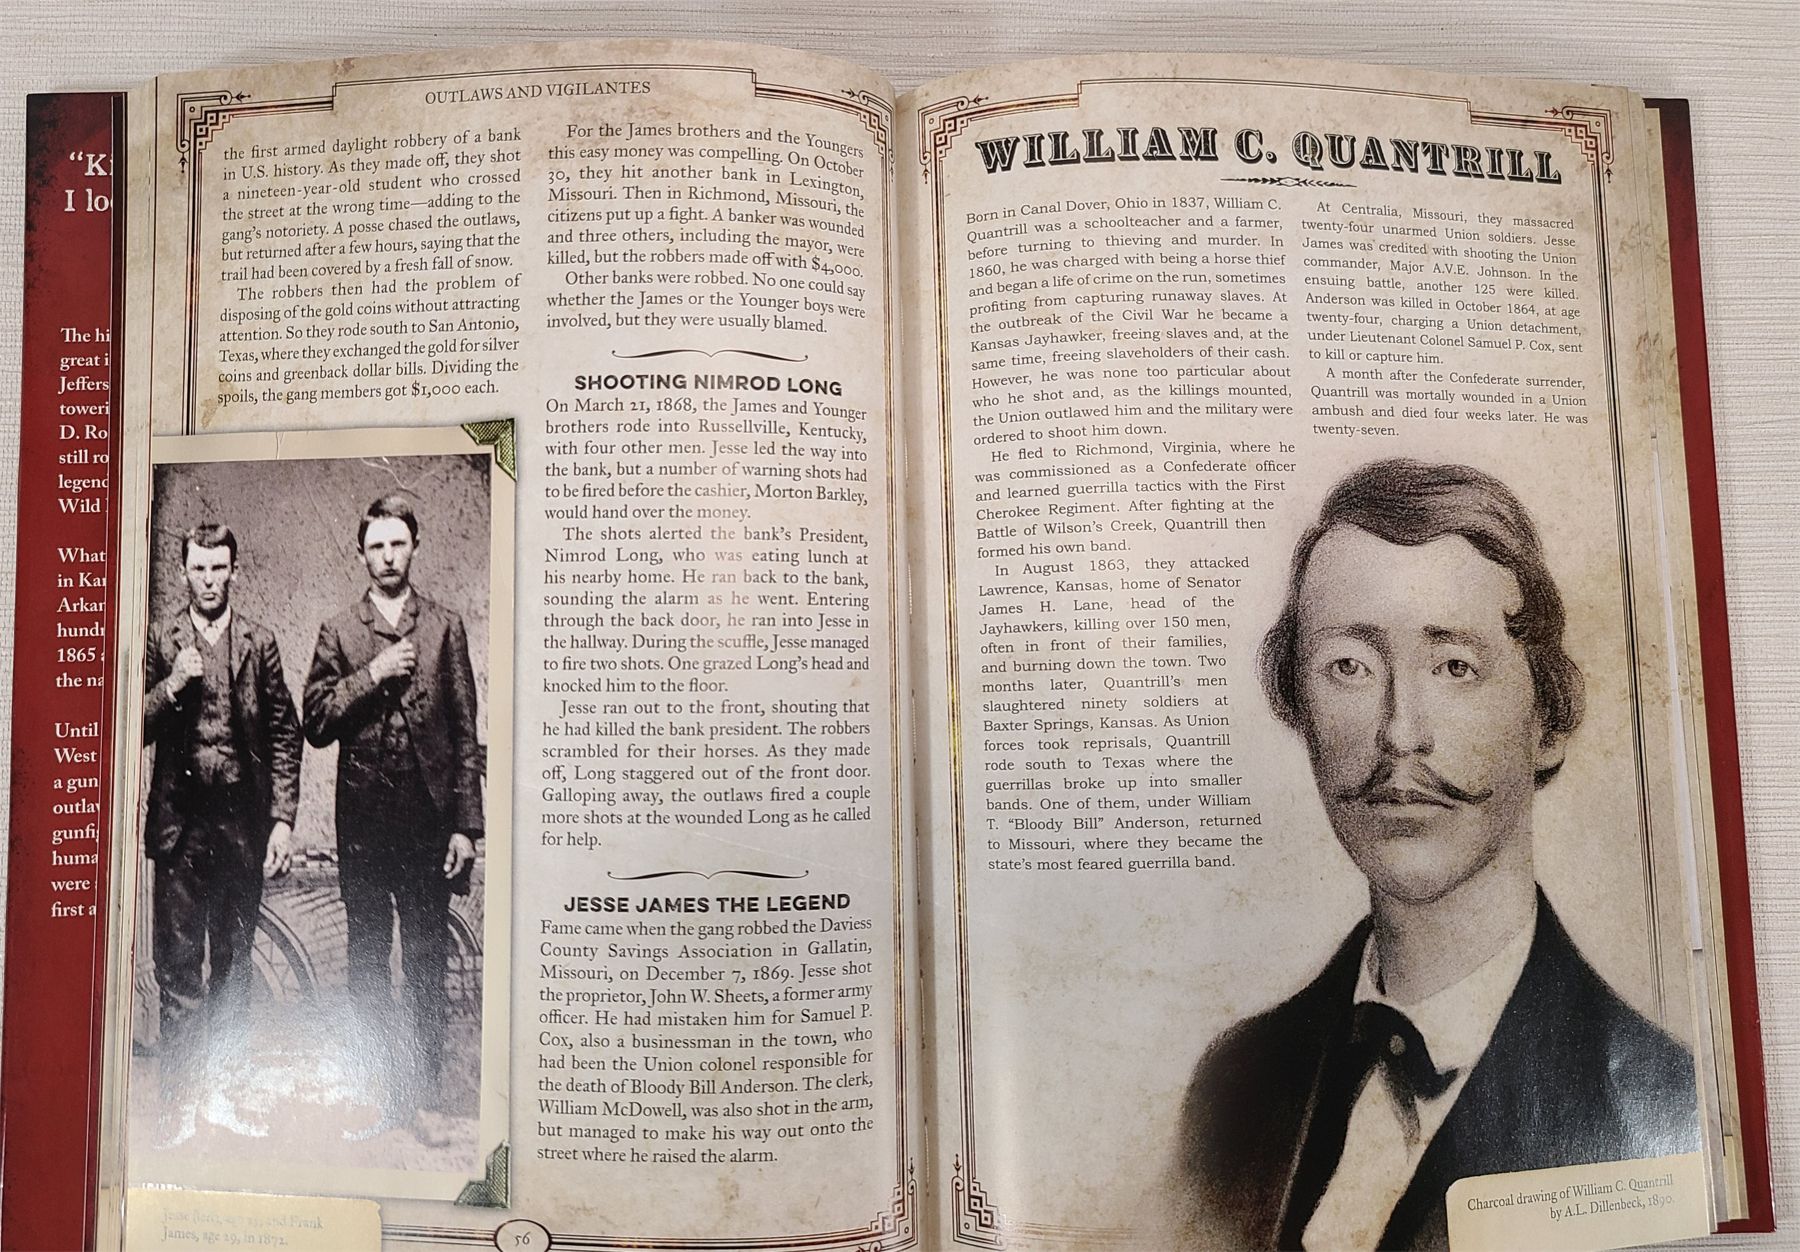 "K
I lo
The hi
great i
Jeffers
toweri
D. Ro
still ro
legend
Wild
What
in Kan
Arkan
hundr
1865
the na
Until
West
a gun
outla
gunfi
huma
were
first a
OUTLAWS AND VIGILANTES
the first armed daylight robbery of a bank
in U.S. history. As they made off, they shot
a nineteen-year-old student who crossed
the street at the wrong time—adding to the
gang's notoriety. A posse chased the outlaws,
but returned after a few hours, saying that the
trail had been covered by a fresh fall of snow.
The robbers then had the problem of
disposing of the gold coins without attracting
attention. So they rode south to San Antonio,
Texas, where they exchanged the gold for silver
coins and greenback dollar bills. Dividing the
spoils, the gang members got $1,000 each.
Jesse (left), age 25, and Frank
James, age 29, in 1872.
For the James brothers and the Youngers
this easy money was compelling. On October
30, they hit another bank in Lexington,
Missouri. Then in Richmond, Missouri, the
citizens put up a fight. A banker was wounded
and three others, including the mayor, were
killed, but the robbers made off with $4,000.
Other banks were robbed. No one could say
whether the James or the Younger boys were
involved, but they were usually blamed.
SHOOTING NIMROD LONG
On March 21, 1868, the James and Younger
brothers rode into Russellville, Kentucky,
with four other men. Jesse led the way into
the bank, but a number of warning shots had
to be fired before the cashier, Morton Barkley,
would hand over the money.
The shots alerted the bank's President,
Nimrod Long, who was eating lunch at
his nearby home. He ran back to the bank,
sounding the alarm as he went. Entering
through the back door, he ran into Jesse in
the hallway. During the scuffle, Jesse managed
to fire two shots. One grazed Long's head and
knocked him to the floor.
Jesse ran out to the front, shouting that
he had killed the bank president. The robbers
scrambled for their horses. As they made
off, Long staggered out of the front door.
Galloping away, the outlaws fired a couple
more shots at the wounded Long as he called
for help.
JESSE JAMES THE LEGEND
Fame came when the gang robbed the Daviess
County Savings Association in Gallatin,
Missouri, on December 7, 1869. Jesse shot
the proprietor, John W. Sheets, a former army
officer. He had mistaken him for Samuel P.
Cox, also a businessman in the town, who
had been the Union colonel responsible for
the death of Bloody Bill Anderson. The clerk,
William McDowell, was also shot in the arm,
but managed to make his way out onto the
street where he raised the alarm.
56
WILLIAM C. QUANTRILL
Born in Canal Dover, Ohio in 1837, William C.
Quantrill was a schoolteacher and a farmer,
before turning to thieving and murder. In
1860, he was charged with being a horse thief
and began a life of crime on the run, sometimes
profiting from capturing runaway slaves. At
the outbreak of the Civil War he became a
Kansas Jayhawker, freeing slaves and, at the
same time, freeing slaveholders of their cash.
However, he was none too particular about
who he shot and, as the killings mounted,
the Union outlawed him and the military were
ordered to shoot him down.
He fled to Richmond, Virginia, where he
was commissioned as a Confederate officer
and learned guerrilla tactics with the First
Cherokee Regiment. After fighting at the
Battle of Wilson's Creek, Quantrill then
formed his own band.
In August 1863, they attacked
Lawrence, Kansas, home of Senator
James H. Lane, head of the
Jayhawkers, killing over 150 men,
often in front of their families,
and burning down the town. Two
months later, Quantrill's men
slaughtered ninety soldiers at
Baxter Springs, Kansas. As Union
forces took reprisals, Quantrill
rode south to Texas where the
guerrillas broke up into smaller
bands. One of them, under William
T. "Bloody Bill" Anderson, returned
to Missouri, where they became the
state's most feared guerrilla band.
At Centralia, Missouri, they massacred
twenty-four unarmed Union soldiers. Jesse
James was credited with shooting the Union
commander, Major A.V.E. Johnson. In the
ensuing battle, another 125 were killed.
Anderson was killed in October 1864, at age
twenty-four, charging a Union detachment,
under Lieutenant Colonel Samuel P. Cox, sent
to kill or capture him.
A month after the Confederate surrender,
Quantrill was mortally wounded in a Union
ambush and died four weeks later. He was
twenty-seven.
Charcoal drawing of William C. Quantrill
by A.L. Dillenbeck, 1890.